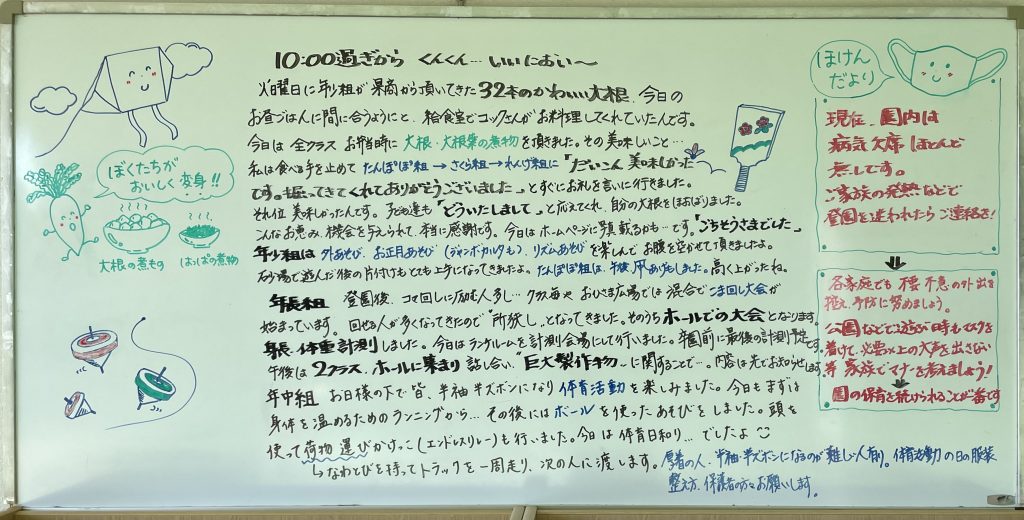 10:00過ぎから くんくん… いいにおい〜
火曜日に年少組が 果商から頂いてきた 32本のかわいい大根、今日の
お昼ごはんに間に合うようにと、給食室でコックさんがお料理してくれていたんです。
今日は 全クラス お弁当時に 大根・大根葉の煮物を頂きました。その美味しいこと…
私は食べる手を止めて たんぽぽ組→さくら組→れんげ組に「だいこん 美味しかった
です。掘ってきてくれてありがとうございました」とすぐにお礼を言いに行きました。
それ位 美味しかったんです。子ども達も「どういたしまして」と応えてくれ、自分の大根をほおばりました。
こんなお恵み、機会を与えられて 本当に感謝です。今日はホームページに 載るかも…です。「ごちそうさまでした」
年少組は 外あそび、お正月あそび(ジャンボカルタも)、リズムあそびを楽しんで お腹を空かせて頂きましたよ。
砂場で遊んだ後の片付けもとても上手になってきましたよ。たんぽぽ組は、午後、凧あげをしました。高く上がったね。
年長組 登園後、コマ回しに励む人多し… クラス毎や おひさま広場では 混合でこま回し大会が
始まっています。回せる人が多くなってきたので "所狭し"となってきました。そのうちホールでの大会となります。
身長・体重計測しました。今日はランチルームを計測会場にして行いました。卒園前に最後の計測予定です。
午後は 2クラス、ホールに集まり 話し合い、"巨大製作物"に関することで… 内容は先でお知らせします。
年中組 お日様の下で 皆、半袖 半ズボンになり 体育活動を楽しみました。今日もまずは
身体を温めるためのランニングから… その後にはボールを使ったあそびをしました。頭を
使って荷物運びかけっこ(エンドレスリレー)も行いました。今日は 体育日和り… でしたよ
なわとびを持ってトラックを一周走り、次の人に渡します。厚着の人、半袖 半ズボンになるのが難しい人有り。体育活動の日の服装、
整え方、保護者の方々お願いします。
ぼくたちが
おいしく変身!!
大根の煮もの
はっぱの煮物
ほけん
だより
現在、園内は
病気欠席 ほとんど
無しです。
ご家族の発熱などで
登園を迷われたら ご連絡を!
各家庭でも 不要 不急の外出を
控え 予防に努めましょう。
公園などで遊ぶ時もマスクを
着けて、必要以上の大声を出さない
等 家族でマナーを考えましょう!
園の保育を続けられることが一番です